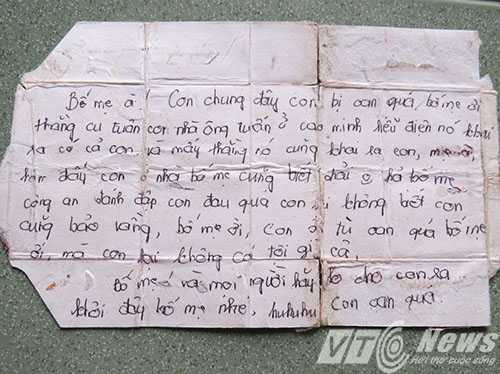 Bố mẹ à! Con chung đây con bị oan quá, bố mẹ ơi
thằng cu tuấn con nhà ông tuấn ở cao minh hiếu điện nó khai
ra có cả con và mấy thằng nó cung khai ra con, mẹ ơi,
hôm đấy con ở nhà bố mẹ cung biết phải o hả bố mẹ
công an đánh đập con đau quá con không biết con
cung bảo vâng, bố mẹ ơi, con ở tù oan quá bố mẹ
ơi, mà con lại không có tội gì cả.
Bố mẹ á và mọi người hãy lo cho con ra
khỏi đây bố mẹ nhé, huhuhu con oan quá.
VTC News
Hơi thở cuộc sống